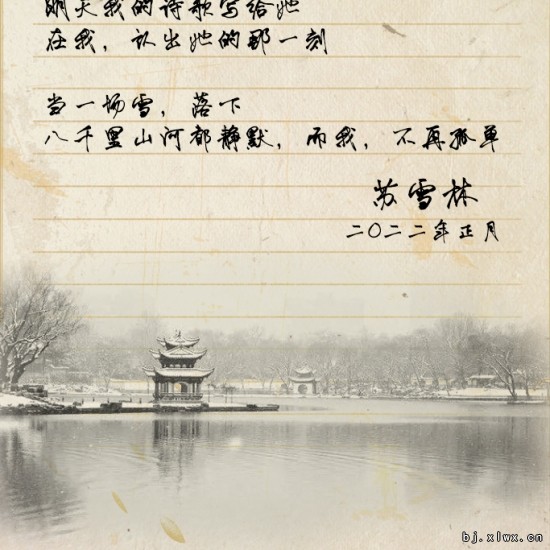 明天我的诗歌写给她
在我，认出她的那一刻
当一场雪，落下
八千里山河都静默，而我，不再孤单
苏雪林
二〇二二年正月
bj.xlwx.cn